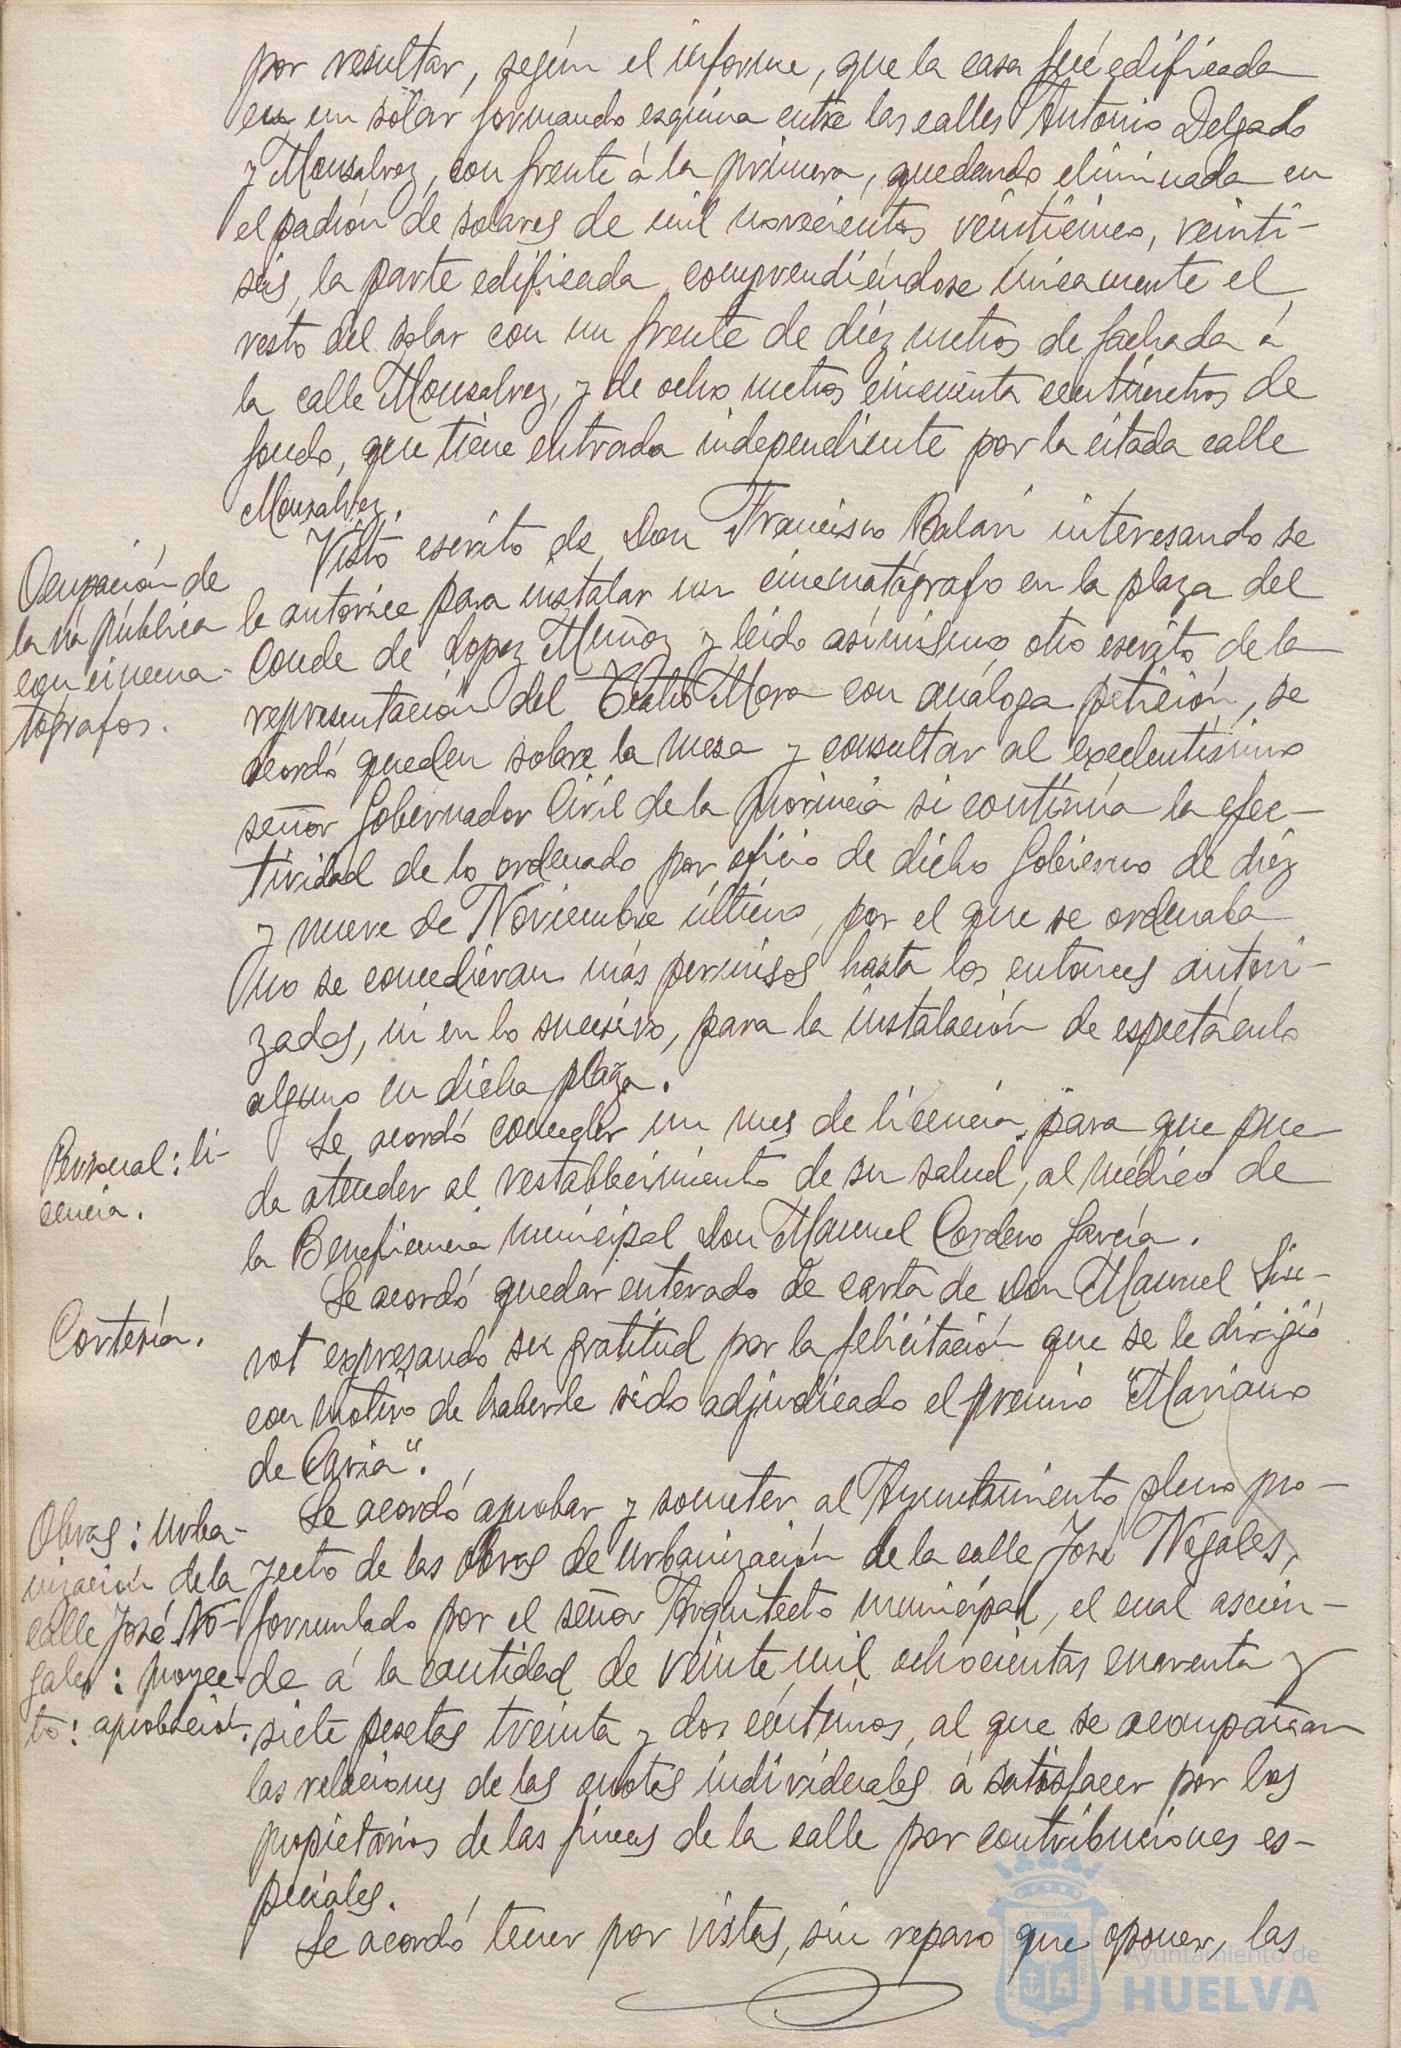 por resultar, según el informe, que la casa fué edificada
en un solar formando esquina entre las calles Antonio Delgado
y Monsalvez, con frente á la primera, quedando eliminada en
el padrón de solares de mil novecientos veinticinco, veinti-
seis, la parte edificada, comprendiéndose únicamente el
resto del solar con un frente de diéz metros de fachada á
la calle Monsalvez, y de ocho metros cincuenta centímetros de
fondo, que tiene entrada independiente por la citada calle
Monsalvez.
Ocupación de
la vía pública
con cinema-
tógrafos.
Visto escrito de Don Francisco Balari interesando se
le autorice para instalar un cinematógrafo en la plaza del
Conde de Lopez Muñoz y leido asimismo otro escrito de la
representación del Teatro Mora con análoga petición, se
acordó queden sobre la mesa y consultar al excelentísimo
señor Gobernador Civil de la provincia si continúa la efec-
tividad de lo ordenado por oficio de dicho Gobierno de diéz
y nueve de Noviembre último, por el que se ordenaba
no se concedieran más permisos hasta los entonces autori-
zados, ni en lo sucesivo, para la instalación de espectáculo
alguno en dicha plaza.
Personal: li-
cencia.
Se acordó conceder un mes de licencia, para que pue
da atender al restablecimiento de su salud, al médico de
la Beneficencia municipal Don Manuel Cordero García.
Cortesía.
Se acordó quedar enterado de carta de Don Manuel Siu-
rot expresando su gratitud por la felicitación que se le dirigió
con motivo de haberle sido adjudicado el premio "Mariano
de Cavia".
Obras: urba-
nización de la
calle José No-
gales: proyec-
to: aprobación.
Se acordó aprobar y someter al Ayuntamiento pleno pro-
yecto de las obras de urbanización de la calle José Nogales,
formulado por el señor Arquitecto municipal, el cual ascien-
de á la cantidad de veinte mil ochocientas cuarenta y
siete pesetas treinta y dos céntimos, al que se acompañan
las relaciones de las cuotas individuales á satisfacer por los
propietarios de las fincas de la calle por contribuciones es-
peciales.
Se acordó tener por vistas, sin reparo que oponer, las
Ayuntamiento de
HUELVA